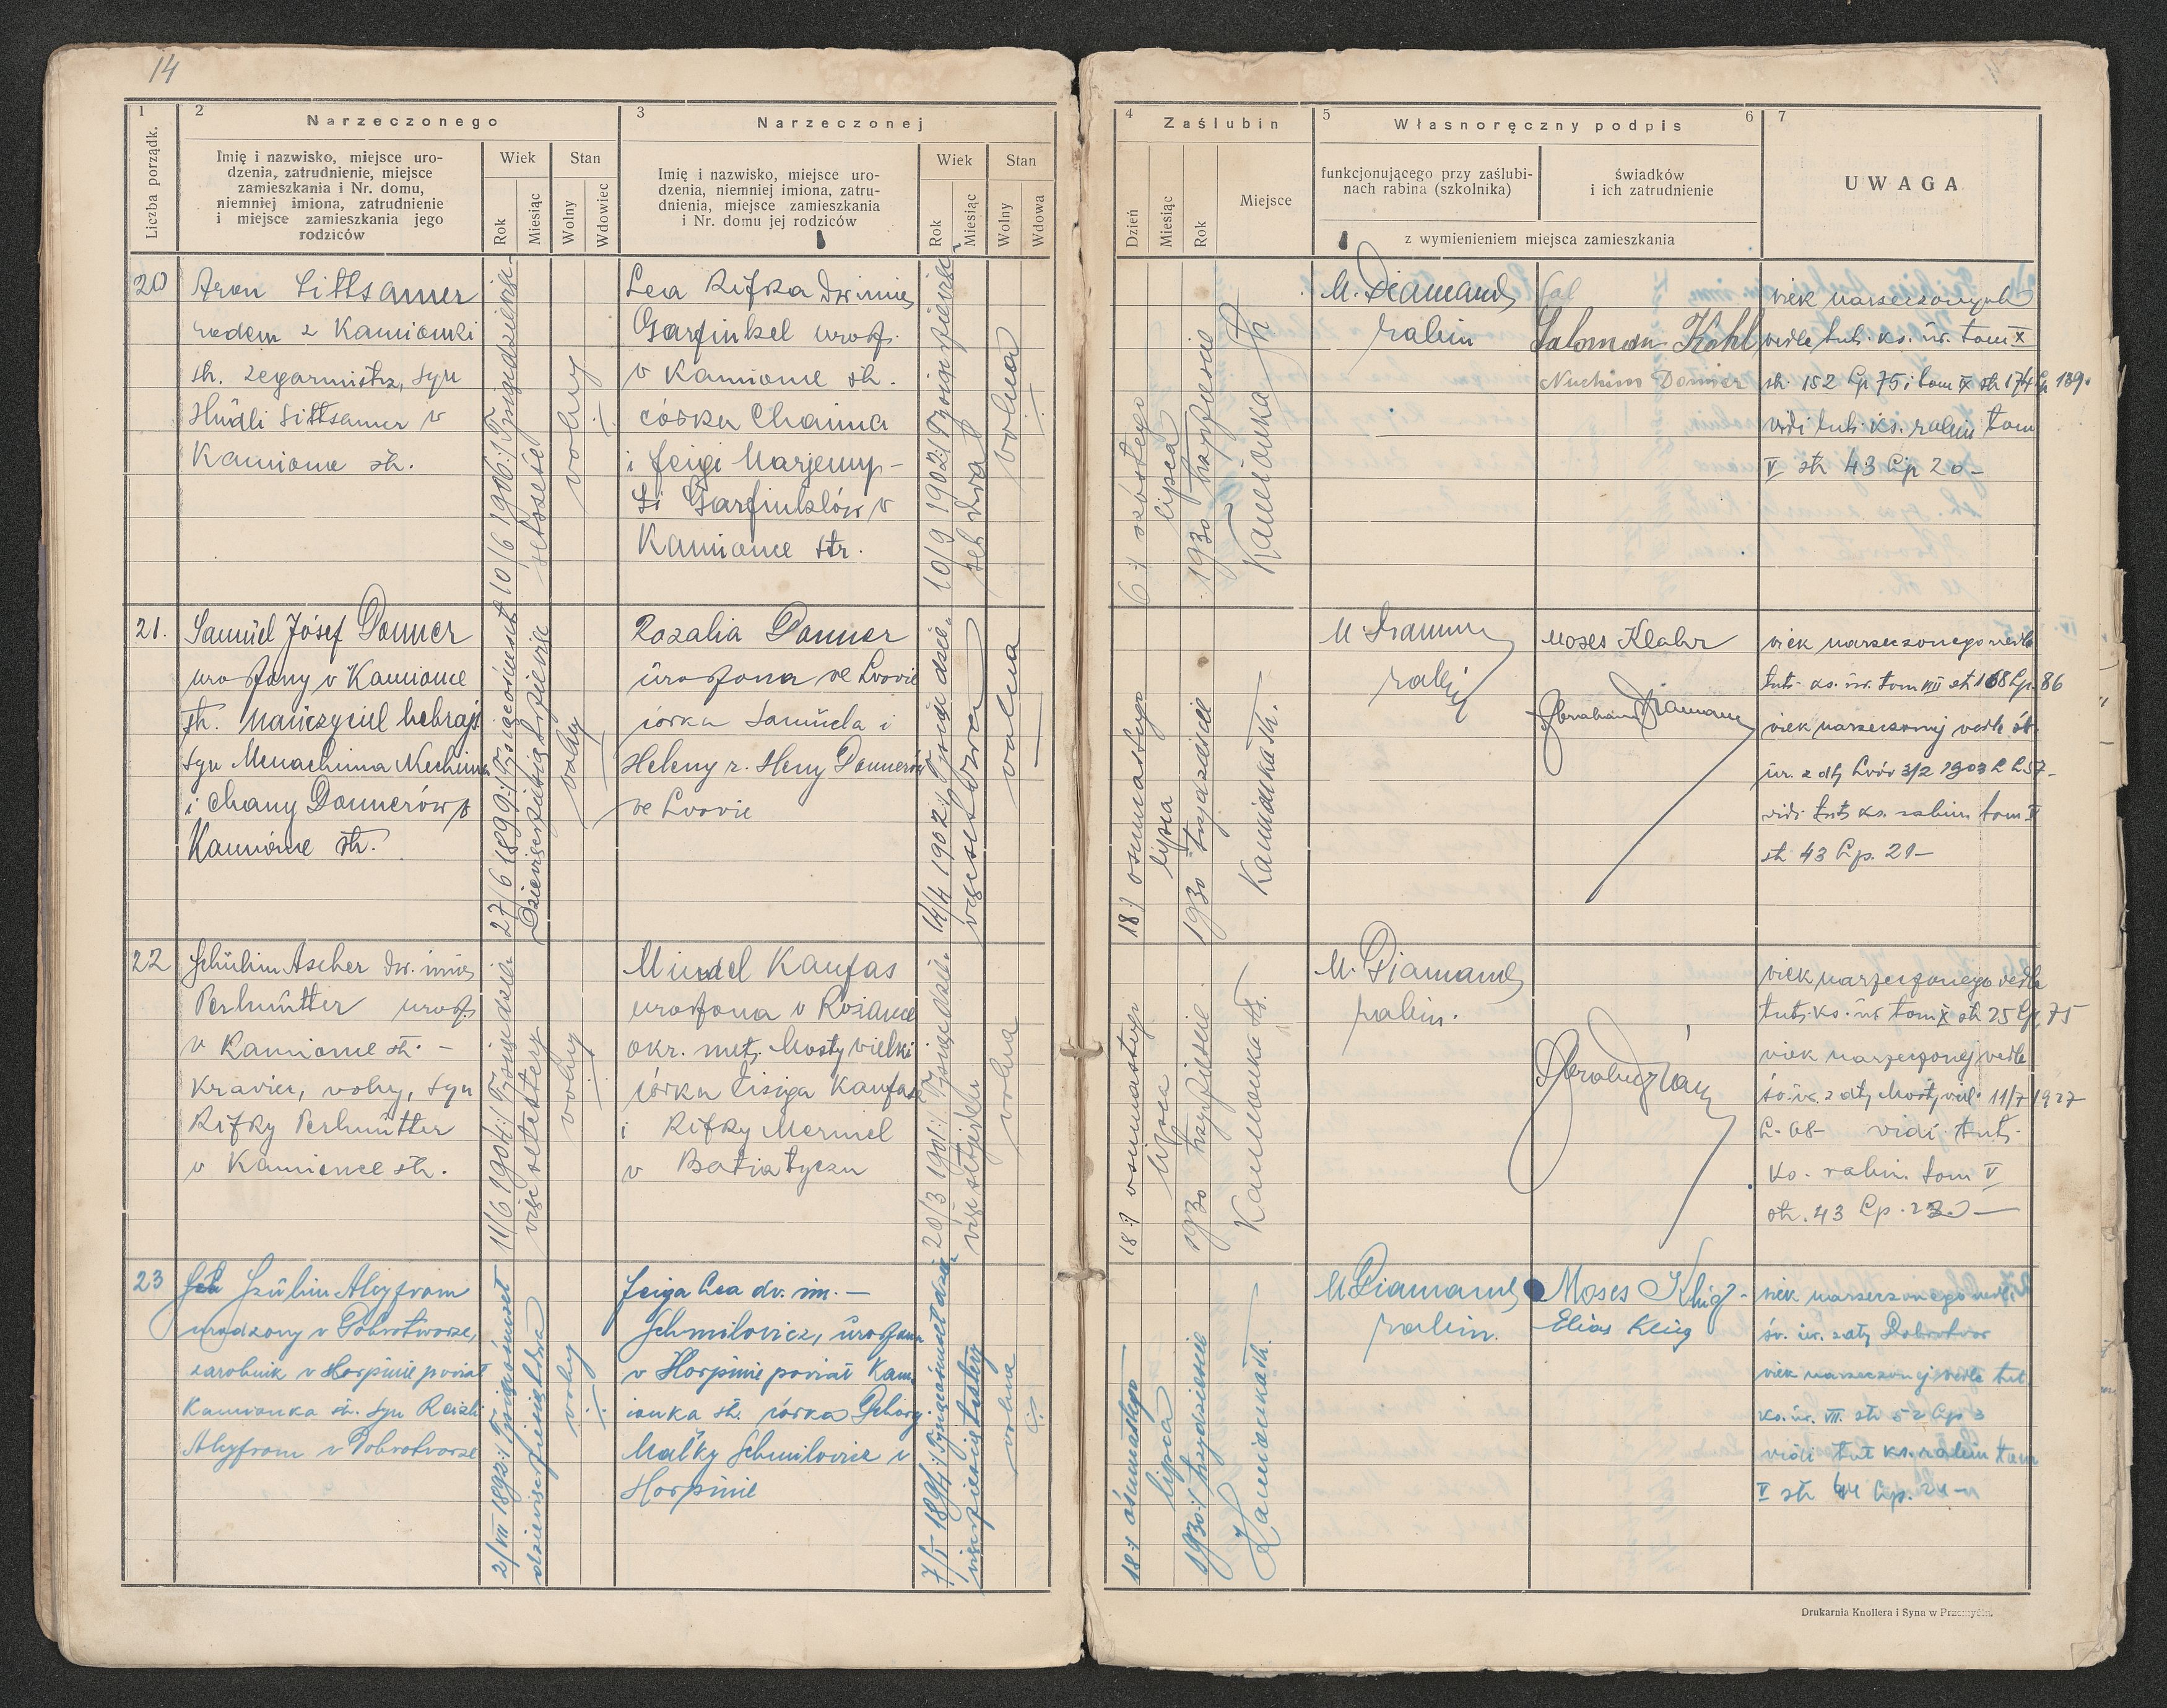 14
1
2
Narzeczonego
3
Narzeczonej
Liczba porządk.
Imię i nazwisko, miejsce uro-
dzenia, zatrudnienie, miejsce
zamieszkania i Nr. domu,
niemniej imiona, zatrudnienie
i miejsce zamieszkania jego
rodziców
Wiek
Stan
Rok
Miesiąc
Wolny
Wdowiec
Imię i nazwisko, miejsce uro-
dzenia, niemniej imiona, zatru-
dnienia, miejsce zamieszkania
i Nr. domu jej rodziców
Wiek
Stan
Rok
Miesiąc
Wolny
Wdowa
4
Zaślubin
5
Własnoręczny podpis
6
7
Dzień
Miesiąc
Rok
Miejsce
funkcjonującego przy zaślubi-
nach rabina (szkolnika)
świadków
i ich zatrudnienie
z wymienieniem miejsca zamieszkania
UWAGA
20
Aron Littsamer
rodem z Kamionki
str. zegarmistrz, syn
Hudli Littsamer w
Kamionce str.
10/6 1906
wolny
Lea Rifka dw. imion
Garfinkel urodz.
w Kamionce str.
córka Chaima
i Feigi Marjemy
Garfinklów w
Kamionce str.
10/9 1902
wolna
6 szóstego
lipca
1930 trzydzieście
Kamionka str.
M. Diamand
rabin
Sal
Salomon Kohl
Nuchim Donner
wiek narzeczonych
wedle tut. ks. ur. tom X
str. 152 Lp 75 i tom IX str 174 Lp 139.
vidi tut. ks. rabin tom
V str 43 Lp 20 -
21.
Samuel Józef Donner
urodzony w Kamionce
str. nauczyciel hebrajs.
syn Menachima Nechima
i Chany Donnerów w
Kamionce str.
27/6 1899
wolny
Rozalia Donner
urodzona we Lwowie
córka Samuela i
Heleny r. Heny Donnerów
we Lwowie
14/4 1902
wolna
18 osiemnastego
lipca
1930 trzydzieście
Kamionka str.
M Diamand
rabin
Moses Klahr
Abraham Diamand
wiek narzeczonego wedle
tut. ks. ur. tom VIII str 168 Lp. 86
wiek narzeczonej wedle św.
ur. z dty Lwów 3/2 1903 L 257 -
vidi tut. ks. rabin tom V
str 43 Lp. 21 -
22
Schulim Ascher dw. imion
Perlmutter urodz.
w Kamionce str. -
krawiec, wolny, syn
Rifky Perlmutter
w Kamionce str.
11/6 1904
wolny
Mindel Kanfas
urodzona w Różance
okr. metr. Mosty wielki
córka Eisiga Kanfasa
i Rifky Mermel
w Batiatyczu
20/3 1901
wolna
18 osiemnastego
lipca
1930 trzydzieście
Kamionka str.
M. Diamand
rabin.
wiek narzeczonego wedle
tut. ks. ur. tom X str 25 Lp. 75
wiek narzeczonej wedle
św. ur. z dty Mosty wiel. 11/7 1927
L. 68 - vidi tut.
ks. rabin. tom V
str. 43 Lp. 22 -
23
Szulim Aleyfrom
urodzony w Dobrotworze,
zarobnik w Horpinie powiat
Kamionka str. syn Reizli
Aleyfrom w Dobrotworze
2/VII 1893
wolny
Feiga Lea dw. im. -
Schmilowicz, urodzona
w Horpinie powiat Kam-
ionka str. córka
Malky Schmilowicz w
Horpinie
7/I 1894
wolna
18 ósmnastego
lipca
1930 trzydzieście
Kamionka str.
M Diamand
rabin.
Moses Klug -
Elias Klug
wiek narzeczonego wedle
św. ur. z dty Dobrotwor
wiek narzeczonej wedle tut
ks. ur. VII. str 52 Lp 3
vidi tut ks. rabin tom
V str 44 Lp. 24 -
Drukarnia Knollera i Syna w Przemyślu.